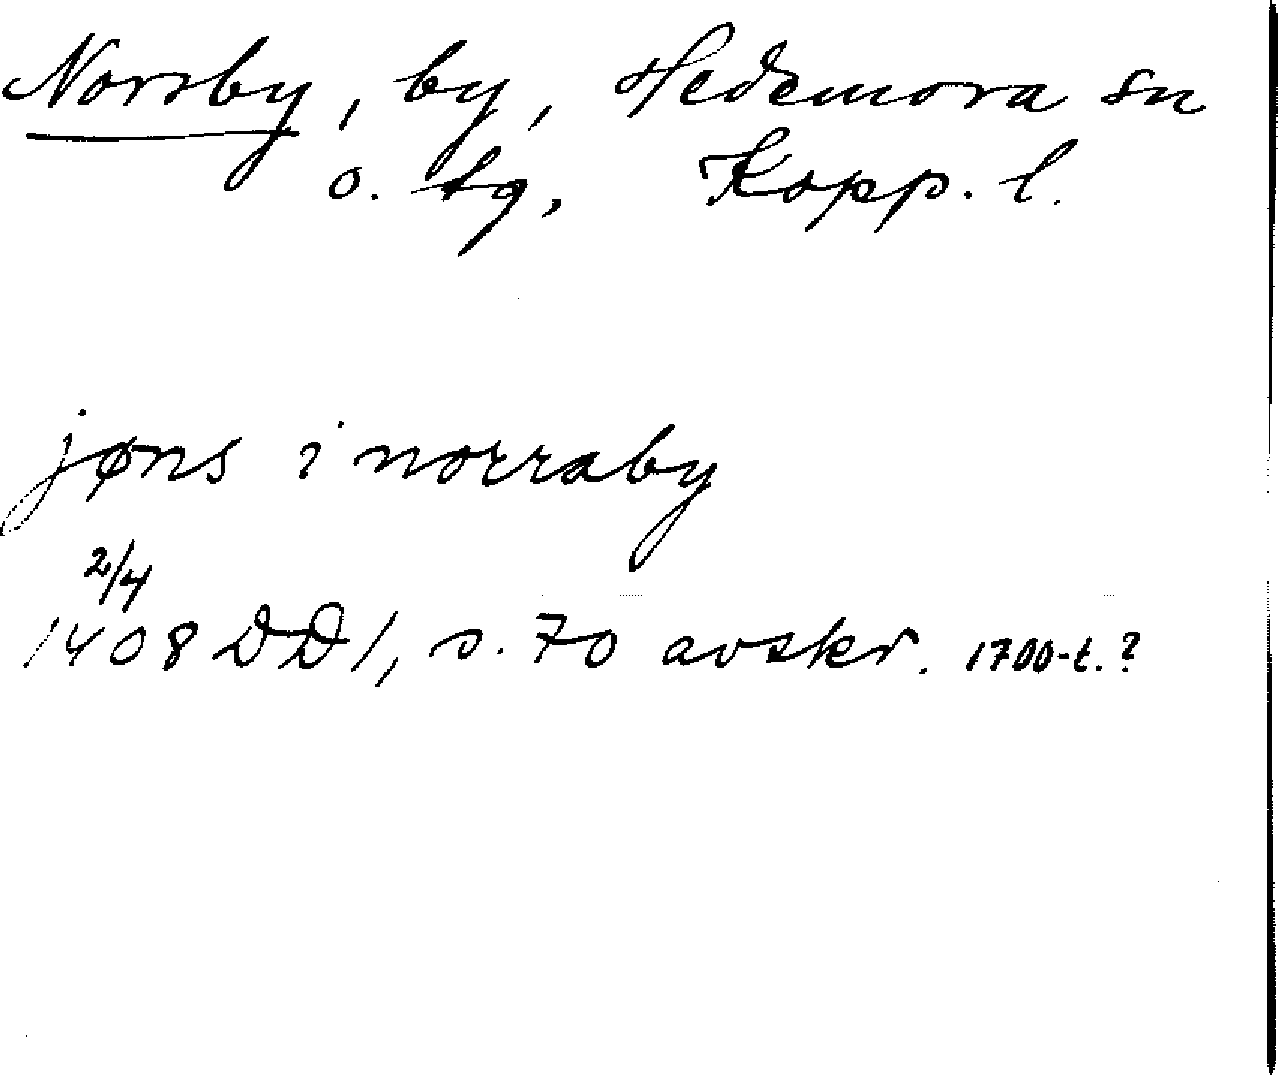 Norsby, by, Hedemora sn
o. tg, Kopp. l.
jøns i norraby
2/4
1408 DD 1, s. 70 avskr. 1700-t.?